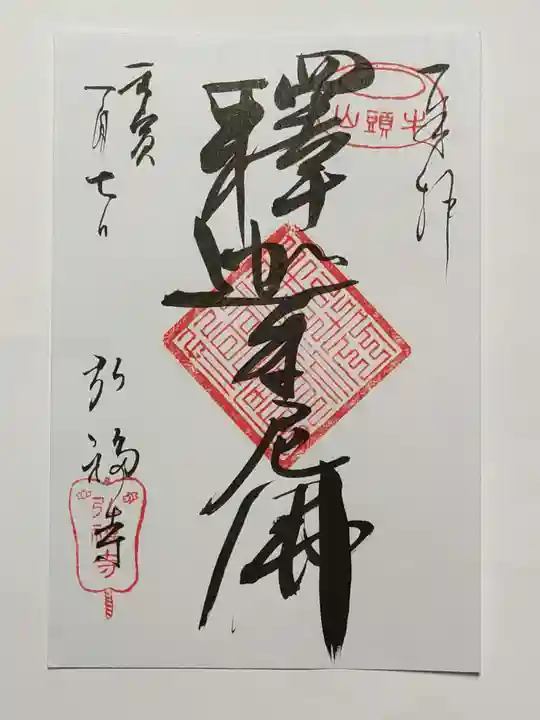 拝
牛頭山
釋迦牟尼佛
壬寅
一月七日
弘福寺
弘福寺